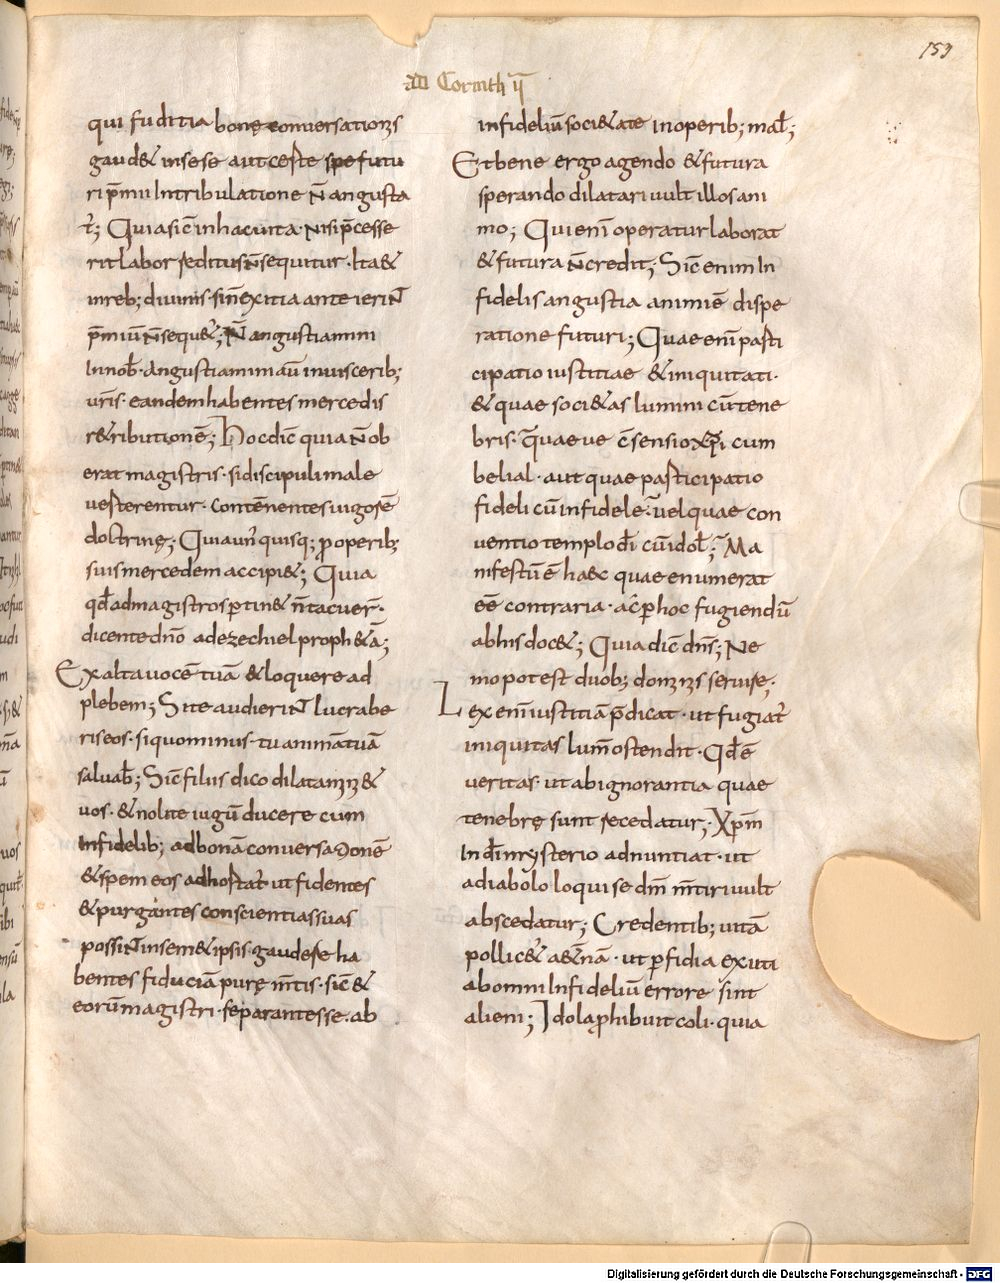 159
ad Corinth ii
qui fiditia bonę conuersationis
gaud& inse se aut cęste spe futu
ri p̄mii In tribulatione n̄ angusta
t̄; Quia sic̄ in hac uita · nisi p̄cesse
rit labor reditus n̄ sequitur · Ita &
in reb; diuinis · sin̄ exitia ante ierint
p̄miū n̄ sequ&; N̄ angustiamini
In nob̄ · angustiamini aū in uiscerib;
ur̄is · eandem habentes mercedis
r&ributionē; Hoc dic̄ quia n̄ ob
erat magistris · si discipuli male
uesterentur · contēnentes uigorē
doctrinę; Quia un̄ quisq; p operib;
suis mercedem accipi&; Quia
qd̄ ad magistros ptin& n̄ tacuer̄ ·
dicente dn̄o ad ezechiel proph&ā;
Exalta uocē tuā & loquere ad
plebem; Si te audierint lucrabe
ris eos · si quominus · tu animā tuā
saluab̄; Sic̄ filiis dico dilatamini &
uos · & nolite iugū ducere cum
Infidelib; ad bonā conuersationē
& spem eos adhortat̄ ut fidentes
& purgantes conscientias suas
possint in sem& ipsis gaudere ha
bentes fiduciā purę m̄tis · sic̄ &
eorū magistri · separantes se · ab
infideliū soci&ate in operib; mal̄;
Et bene ergo agendo & futura
sperando dilatari uult illos ani
mo; Qui enī operatur laborat
& futura n̄ credit; Sic̄ enim In
fidelis angustia animi ē dispe
ratione futuri; Quae enī pasti
cipatio iustitiae & iniquitati ·
& quae soci&as lumini cū tene
bris · quae ue c̄sensio xpi cum
belial · aut quae pasticipatio
fideli cū infidele · uel quae con
uentio templo dī cū idol̄; Ma
nifestū ē haec quae enumerat
eē contraria · ac p hoc fugiendū
ab his doc&; Quia dic̄ dn̄s; Ne
mo potest duob; dominis seruire;
Lex enī iustitiā p̄dicat · ut fugiat̄
iniquitas lum̄ ostendit · Qd̄ ē
ueritas · ut ab ignorantia quae
tenebrę sunt recedatur; Xpm̄
In dī mysterio adnuntiat · ut
a diabolo loqui se dm̄ m̄tiri uult
abscedatur; Credentib; uitā
pollic&̄ a&̄nā · ut pfidia exuti
ab omni Infideliū errore sint
alieni; Idola phibuit coli · quia
Digitalisierung gefördert durch die Deutsche Forschungsgemeinschaft - DFG